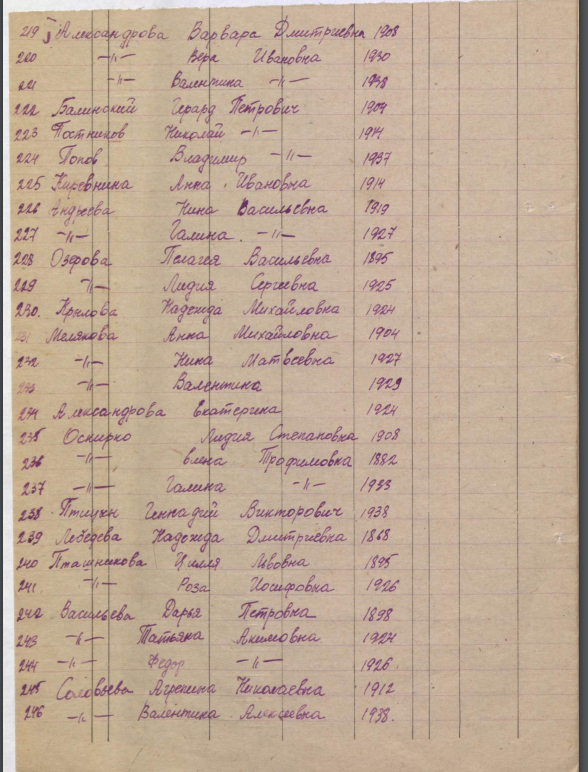 219 Александрова Варвара Дмитриевна 1908
220 —"— Вера Ивановна 1930
221 —"— Валентина —"— 1938
222 Балинский Герард Петрович 1904
223 Постников Николай —"— 1914
224 Попов Владимир —"— 1937
225 Киревнина Анна Ивановна 1914
226 Андреева Нина Васильевна 1919
227 —"— Галина —"— 1927
228 Озерова Пелагея Васильевна 1895
229 —"— Лидия Сергеевна 1925
230. Крылова Надежда Михайловна 1924
231 Мелякова Анна Михайловна 1904
232 —"— Нина Матвеевна 1927
233 —"— Валентина 1929
234 Александрова Екатерина 1924
235 Оскирко Лидия Степановна 1908
236 —"— Елена Трофимовка 1882
237 —"— Галина —"— 1933
238 Птицин Геннадий Викторович 1938
239 Лебедева Надежда Дмитриевна 1868
240 Пташникова Цилля Львовна 1895
241 —"— Роза Иосифовна 1926
242 Васильева Дарья Петровна 1898
243 —"— Татьяна Акимовна 1924
244 —"— Федор —"— 1926.
245 Соловьева Агрепина Николаевна 1912
246 —"— Валентина Алексеевна 1938.